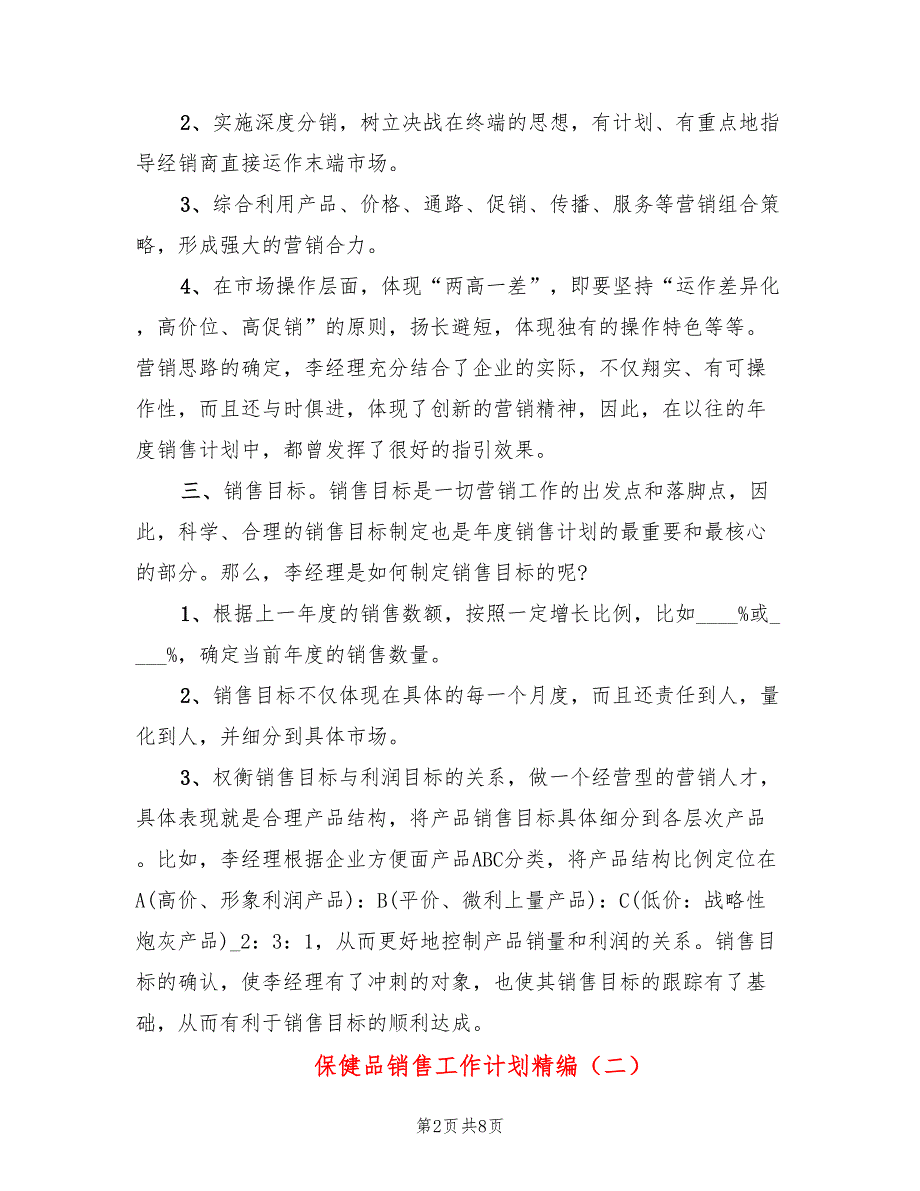 2、实施深度分销，树立决战在终端的思想，有计划、有重点地指
导经销商直接运作末端市场。
3、综合利用产品、价格、通路、促销、传播、服务等营销组合策
略，形成强大的营销合力。
4、在市场操作层面，体现“两高一差”，即要坚持“运作差异化
，高价位、高促销”的原则，扬长避短，体现独有的操作特色等等。
营销思路的确定，李经理充分结合了企业的实际，不仅翔实、有可操
作性，而且还与时俱进，体现了创新的营销精神，因此，在以往的年
度销售计划中，都曾发挥了很好的指引效果。
三、销售目标。销售目标是一切营销工作的出发点和落脚点，因
此，科学、合理的销售目标制定也是年度销售计划的最重要和最核心
的部分。那么，李经理是如何制定销售目标的呢?
1、根据上一年度的销售数额，按照一定增长比例，比如____%或_
___%，确定当前年度的销售数量。
2、销售目标不仅体现在具体的每一个月度，而且还责任到人，量
化到人，并细分到具体市场。
3、权衡销售目标与利润目标的关系，做一个经营型的营销人才，
具体表现就是合理产品结构，将产品销售目标具体细分到各层次产品
。比如，李经理根据企业方便面产品ABC分类，将产品结构比例定位在
A(高价、形象利润产品)：B(平价、微利上量产品)：C(低价：战略性
炮灰产品)_2：3：1，从而更好地控制产品销量和利润的关系。销售目
标的确认，使李经理有了冲刺的对象，也使其销售目标的跟踪有了基
础，从而有利于销售目标的顺利达成。
保健品销售工作计划精编（二）
第2页 共8页